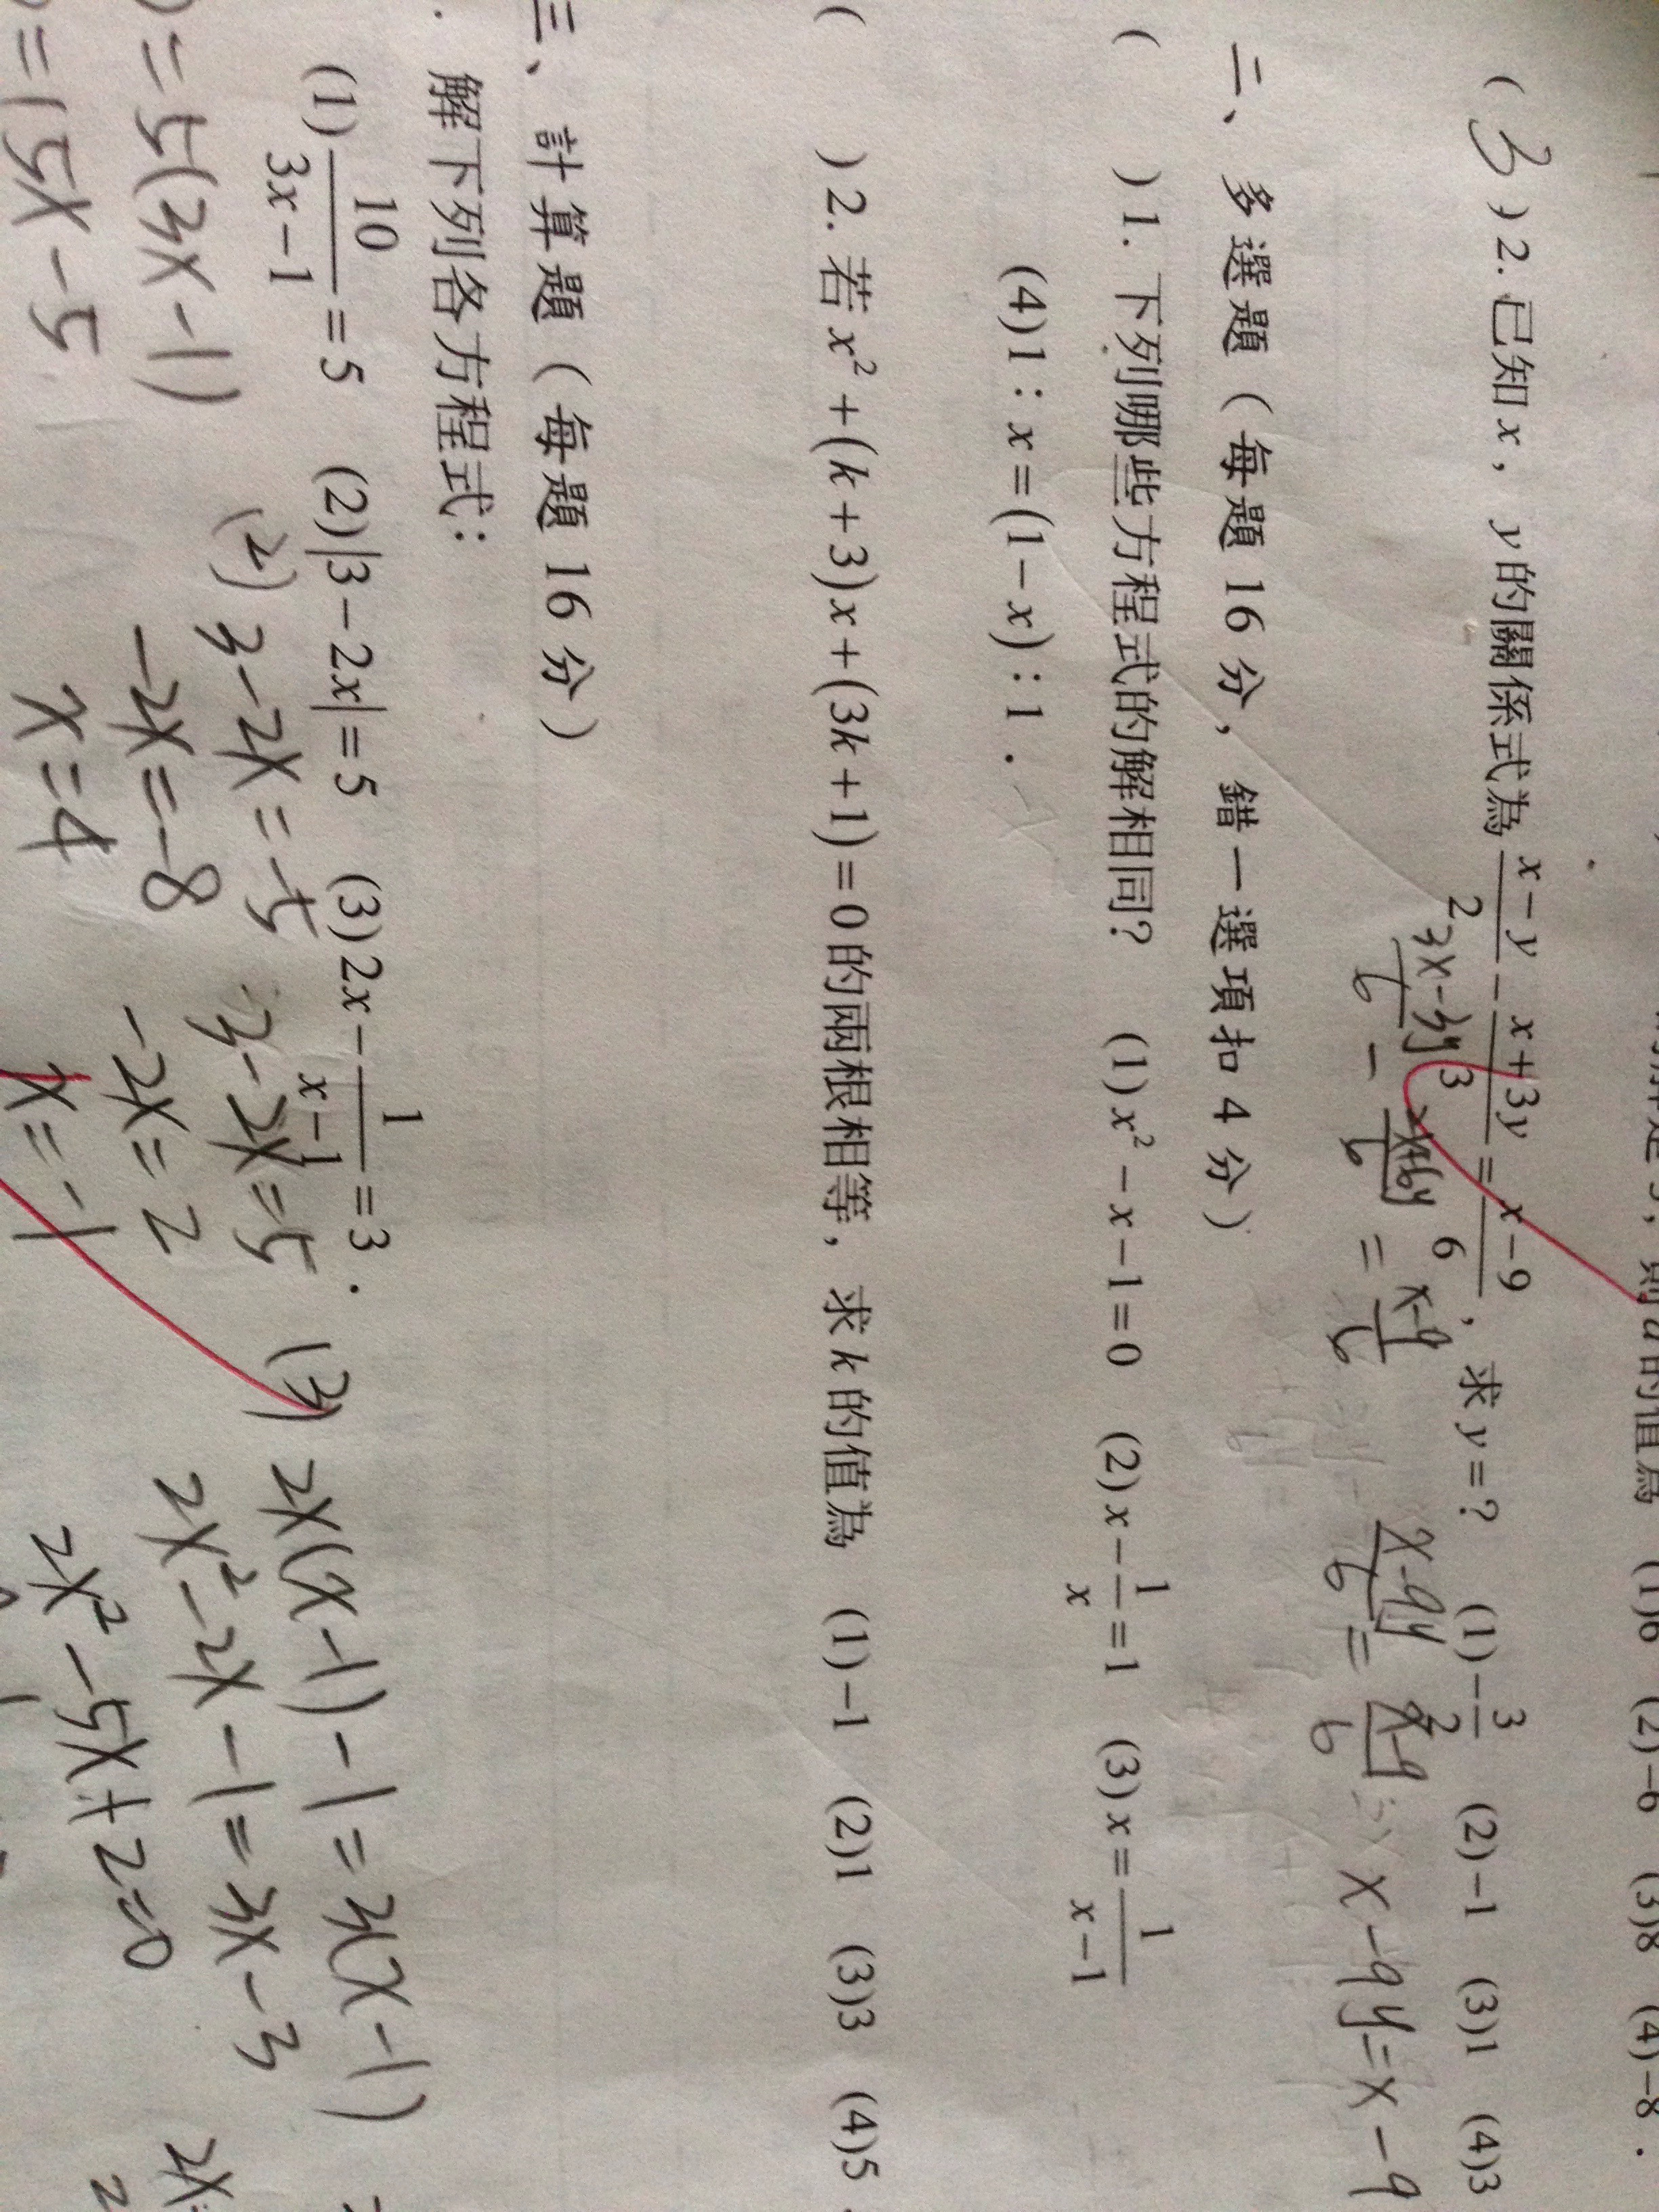 的值為 (1)6 (2)−6 (3)8 (4)−8．
(3)2. 已知x，y的關係式為 \frac{x-y}{2} − \frac{x+3y}{3} = \frac{x-9}{6}，求y=？ (1)−\frac{3}{2} (2)−1 (3)1 (4)3
\frac{3x-3y}{6} − \frac{2x+6y}{6} = \frac{x-9}{6} \frac{x-9y}{6} = \frac{x-9}{6} x−9y=x−9
二、多選題（每題 16 分，錯一選項扣 4 分）
( )1. 下列哪些方程式的解相同？ (1)x²−x−1=0 (2)x−\frac{1}{x}=1 (3)x=\frac{1}{x-1}
(4)1：x=(1−x)：1．
( )2. 若x²+(k+3)x+(3k+1)=0的兩根相等，求k的值為 (1)−1 (2)1 (3)3 (4)5．
三、計算題（每題 16 分）
解下列各方程式：
(1)\frac{10}{3x-1}=5 (2)|3−2x|=5 (3)2x−\frac{1}{x-1}=3．
=5(3x−1)
=15x−5
(2) 3−2x=−5
−2x=−8
x=4
3−2x=5
−2x=2
x=−1
(3) 2x(x−1)−1=3(x−1)
2x²−2x−1=3x−3
2x²−5x+2=0